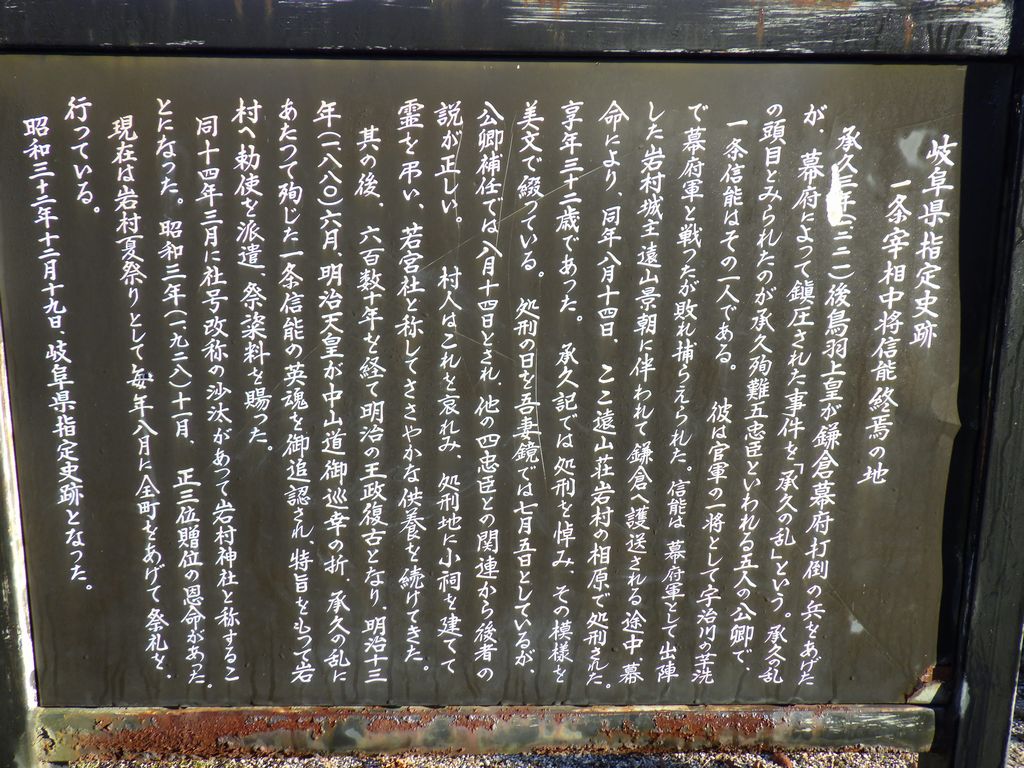 岐阜県指定史跡
一条宰相中将信能終焉の地
承久三年(一二二一)後鳥羽上皇が鎌倉幕府打倒の兵をあげた
が、幕府によって鎮圧された事件を「承久の乱」という。承久の乱
の頭目とみられたのが承久殉難五忠臣といわれる五人の公卿で、
一条信能はその一人である。 彼は官軍の一将として宇治川の芋洗
で幕府軍と戦ったが敗れ捕らえられた。信能は、幕府軍として出陣
した岩村城主遠山景朝に伴われて鎌倉へ護送される途中、幕
命により、同年八月十四日、ここ遠山荘岩村の相原で処刑された。
享年三十二歳であった。 承久記では処刑を悼み、その模様を
美文で綴っている。 処刑の日を吾妻鏡では七月五日としているが、
公卿補任では八月十四日とされ、他の四忠臣との関連から後者の
説が正しい。 村人はこれを哀れみ、処刑地に小祠を建てて
霊を弔い、若宮社と称してささやかな供養を続けてきた。
其の後、六百数十年を経て明治の王政復古となり、明治十三
年(一八八〇)六月、明治天皇が中山道御巡幸の折、承久の乱に
あたって殉じた一条信能の英魂を御追認され、特旨をもって岩
村へ勅使を派遣、祭粢料を賜った。
同十四年三月に社号改称の沙汰があって岩村神社と称するこ
とになった。昭和三年(一、九二八)十一月、 正三位贈位の恩命があった。
現在は岩村夏祭りとして毎年八月に全町をあげて祭礼を、
行っている。
昭和三十三年十二月十九日、岐阜県指定史跡となった。